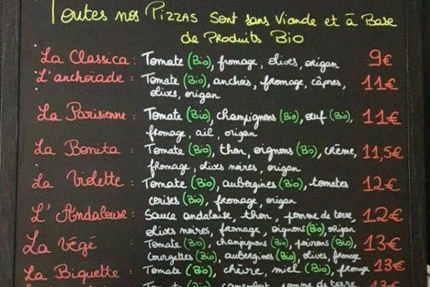 Toutes nos Pizzas sont sans viande et à Base
de Produits Bio
La Classica : Tomate (Bio), fromage, olives, origan 9€
L'anchoïade : Tomate (Bio), anchois, fromage, câpres, 11€
olives, origan
La Parisienne : Tomate (Bio), champignons (Bio), œuf (Bio), 11€
fromage, ail, origan
La Bonita : Tomate (Bio), thon, oignons (Bio), crème, 11,5€
fromage, olives noires, origan
La Violette : Tomate (Bio), aubergines (Bio), tomates 12€
cerises (Bio), fromage, origan
L'Andalouse : Sauce andalouse, thon, pomme de terre, 12€
olives noires, fromage, oignons (Bio), origan
La Végé : Tomate (Bio), champignons (Bio), poivrons (Bio), 13€
courgettes (Bio), aubergines (Bio), olives, fromage
La Biquette : Tomate (Bio), chèvre, miel (Bio), fromage 13€
Tomate (Bio), camembert, pomme de terre 13€